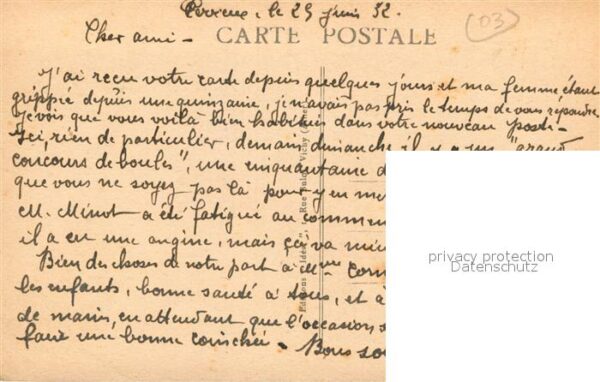 le 25 juin 32.
(03)
Cher ami –
CARTE POSTALE
J'ai reçu votre carte depuis quelques jours et ma femme étant
grippée depuis une quinzaine, je n'avais pas pris le temps de vous répondre
Je vois que vous voilà bien habitués dans votre nouveau poste –
Ici, rien de particulier, demain dimanche il y a un "grand
concours de boules", une cinquantaine d
que vous ne soyez pas là pour y en
M. Minot a été fatigué au commen
il a eu une angine, mais ça va mi
Bien des choses de notre part à Mme Corn
les enfants, bonne santé à tous, et à
de mains, en attendant que l'occasion s
faire une bonne – Bons
Rue Vichy
privacy protection
Datenschutz